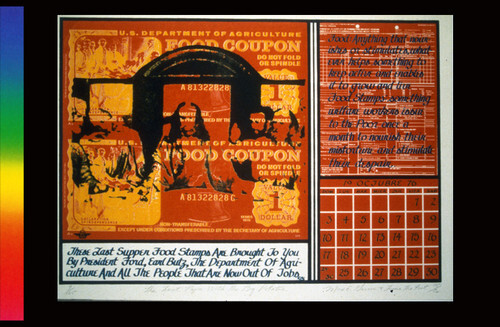 U.S. DEPARTMENT OF AGRICULTURE
FOOD COUPON
DO NOT FOLD
OR SPINDLE
A 81322828
1
FOOD COUPON
DO NOT FOLD
OR SPINDLE
A 81322828 C
1
DOLLAR
NON-TRANSFERABLE
EXCEPT UNDER CONDITIONS PRESCRIBED BY THE SECRETARY OF AGRICULTURE
These Last Supper Food Stamps Are Brought To You
By President Ford, Earl Butz, The Department Of Agri-
culture And All The People That Are Now Out Of Jobs.
Food-Anything that nour-
ishes or stimulates; what
ever helps something to
keep active and enables
it to grow and run
Food Stamps-something
welfare workers issue
to the Poor once a
month to nourish their
misfortune and stimulate
their
OCTUBRE 76
1 2
3 4 5 6 7 8 9
10 11 12 13 14 15 16
17 18 19 20 21 22 23
25 26 27 28 29 30